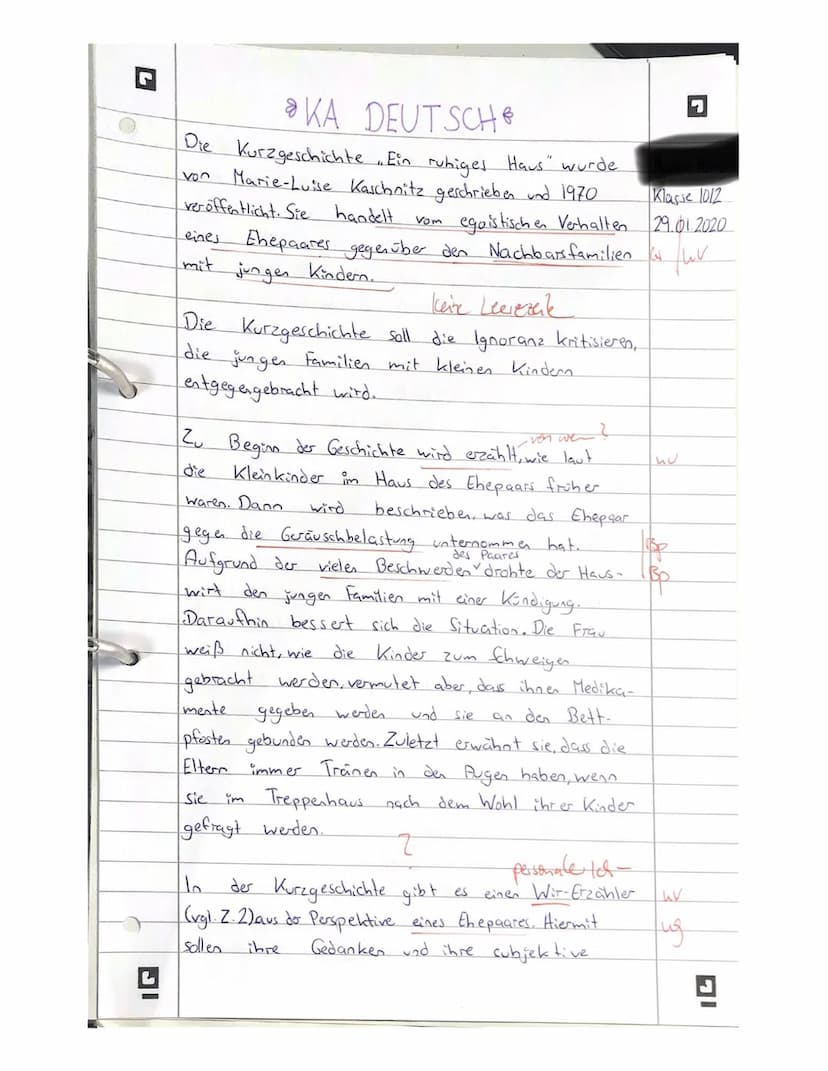 KA DEUTSCH
Die Kurzgeschichte „Ein ruhiges Haus" wurde
von Marie-Luise Kaschnitz geschrieben und 1970
Klasse 10/2
veröffentlicht. Sie handelt vom egoistischen Verhalten
29.01.2020
eines Ehepaares gegenüber den Nachbarsfamilien
mit jungen Kindern.
Die Kurzgeschichte soll die Ignoranz kritisieren,
die jungen Familien mit kleinen Kindern
entgegengebracht wird.
von wem?
Zu Beginn der Geschichte wird erzählt, wie laut
die Kleinkinder im Haus des Ehepaars früher
waren. Dann wird beschrieben, was das Ehepaar
gegen die Geräuschbelastung unternommen hat.
Bp
des Paares
Aufgrund der vielen Beschwerden drohte der Haus-
Bp
wirt den jungen Familien mit einer Kündigung.
Daraufhin bessert sich die Situation. Die Frau
weiß nicht, wie die Kinder zum Schweigen
gebracht werden, vermutet aber, dass ihnen Medika-
mente gegeben werden und sie an den Bett-
pfosten gebunden werden. Zuletzt erwähnt sie, dass die
Eltern immer Tränen in den Augen haben, wenn
sie im Treppenhaus nach dem Wohl ihrer Kinder
gefragt werden.
?
personale Ich-
In der Kurzgeschichte gibt es einen Wir-Erzähler
(vgl. Z. 2) aus der Perspektive eines Ehepaares. Hiermit
ug
sollen ihre Gedanken und ihre subjektive